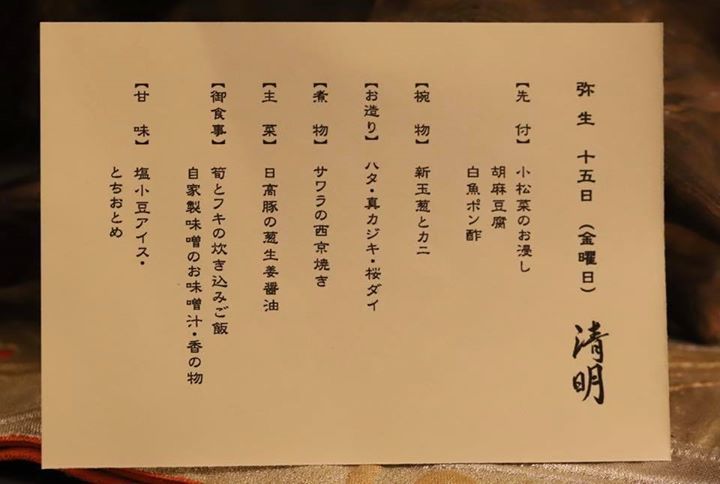 弥生 十五日 （金曜日） 清明
【先 付】 小松菜のお浸し
胡麻豆腐
白魚ポン酢
【椀 物】 新玉葱とカニ
【お造り】 ハタ・真カジキ・桜ダイ
【煮 物】 サワラの西京焼き
【主 菜】 日高豚の葱生姜醤油
【御食事】 筍とフキの炊き込みご飯
自家製味噌のお味噌汁・香の物
【甘 味】 塩小豆アイス・
とちおとめ